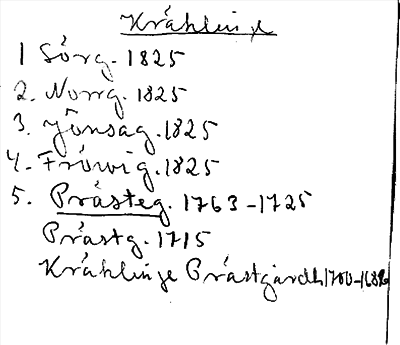 Kräklinge
1 Sörg. 1825
2. Norrg. 1825
3. Jönsag. 1825
4. Fröwig. 1825
5. Prästeg. 1763-1725
Prästg. 1715
Kräklinge Prästgårdh 1700-1686